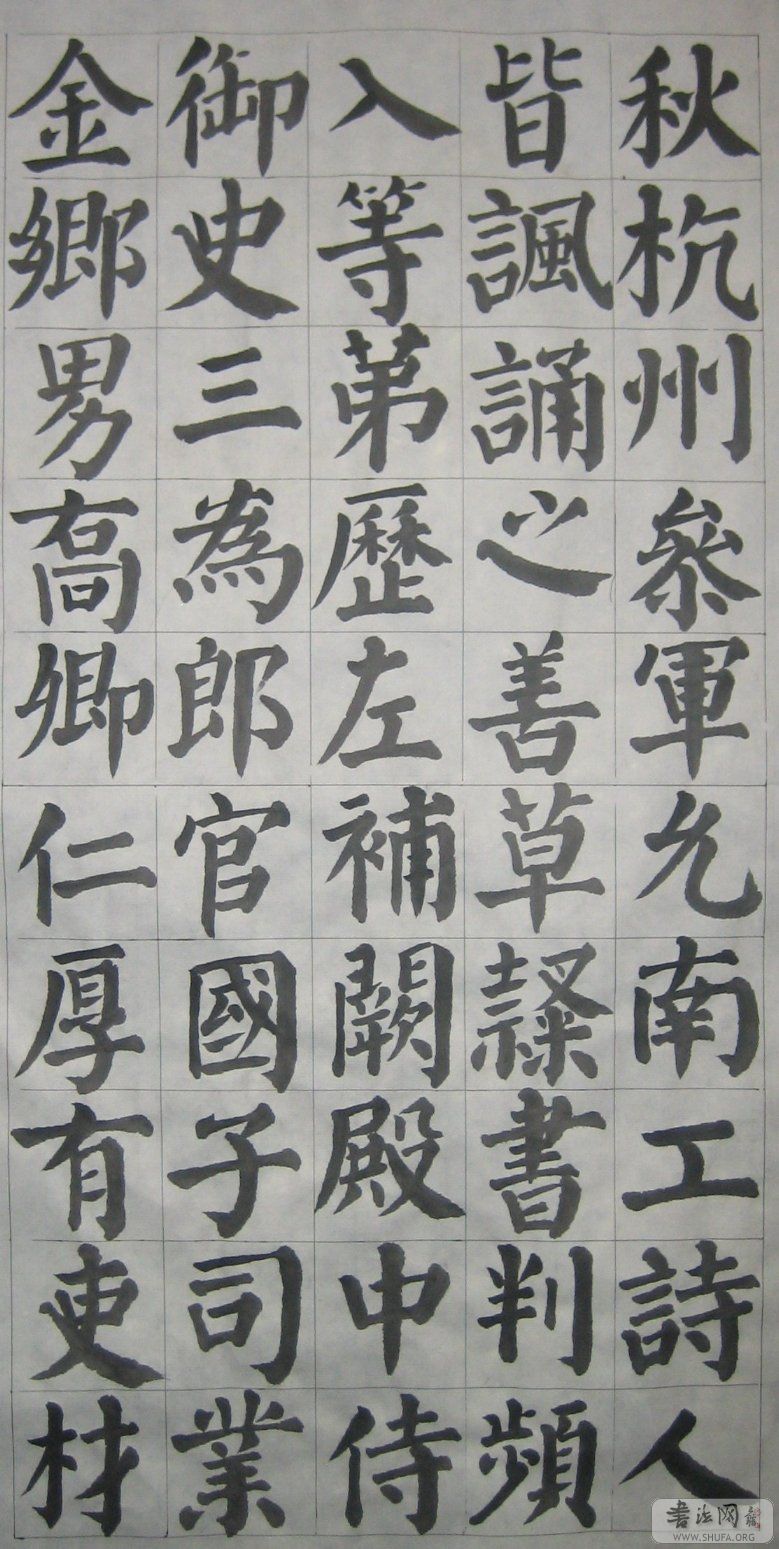 秋杭州參軍允南工詩人
皆諷誦之善草隸書判頻
入等第歷左補闕殿中侍
御史三為郎官國子司業
金鄉男喬卿仁厚有吏材
書法网
WWW.SHUFA.ORG